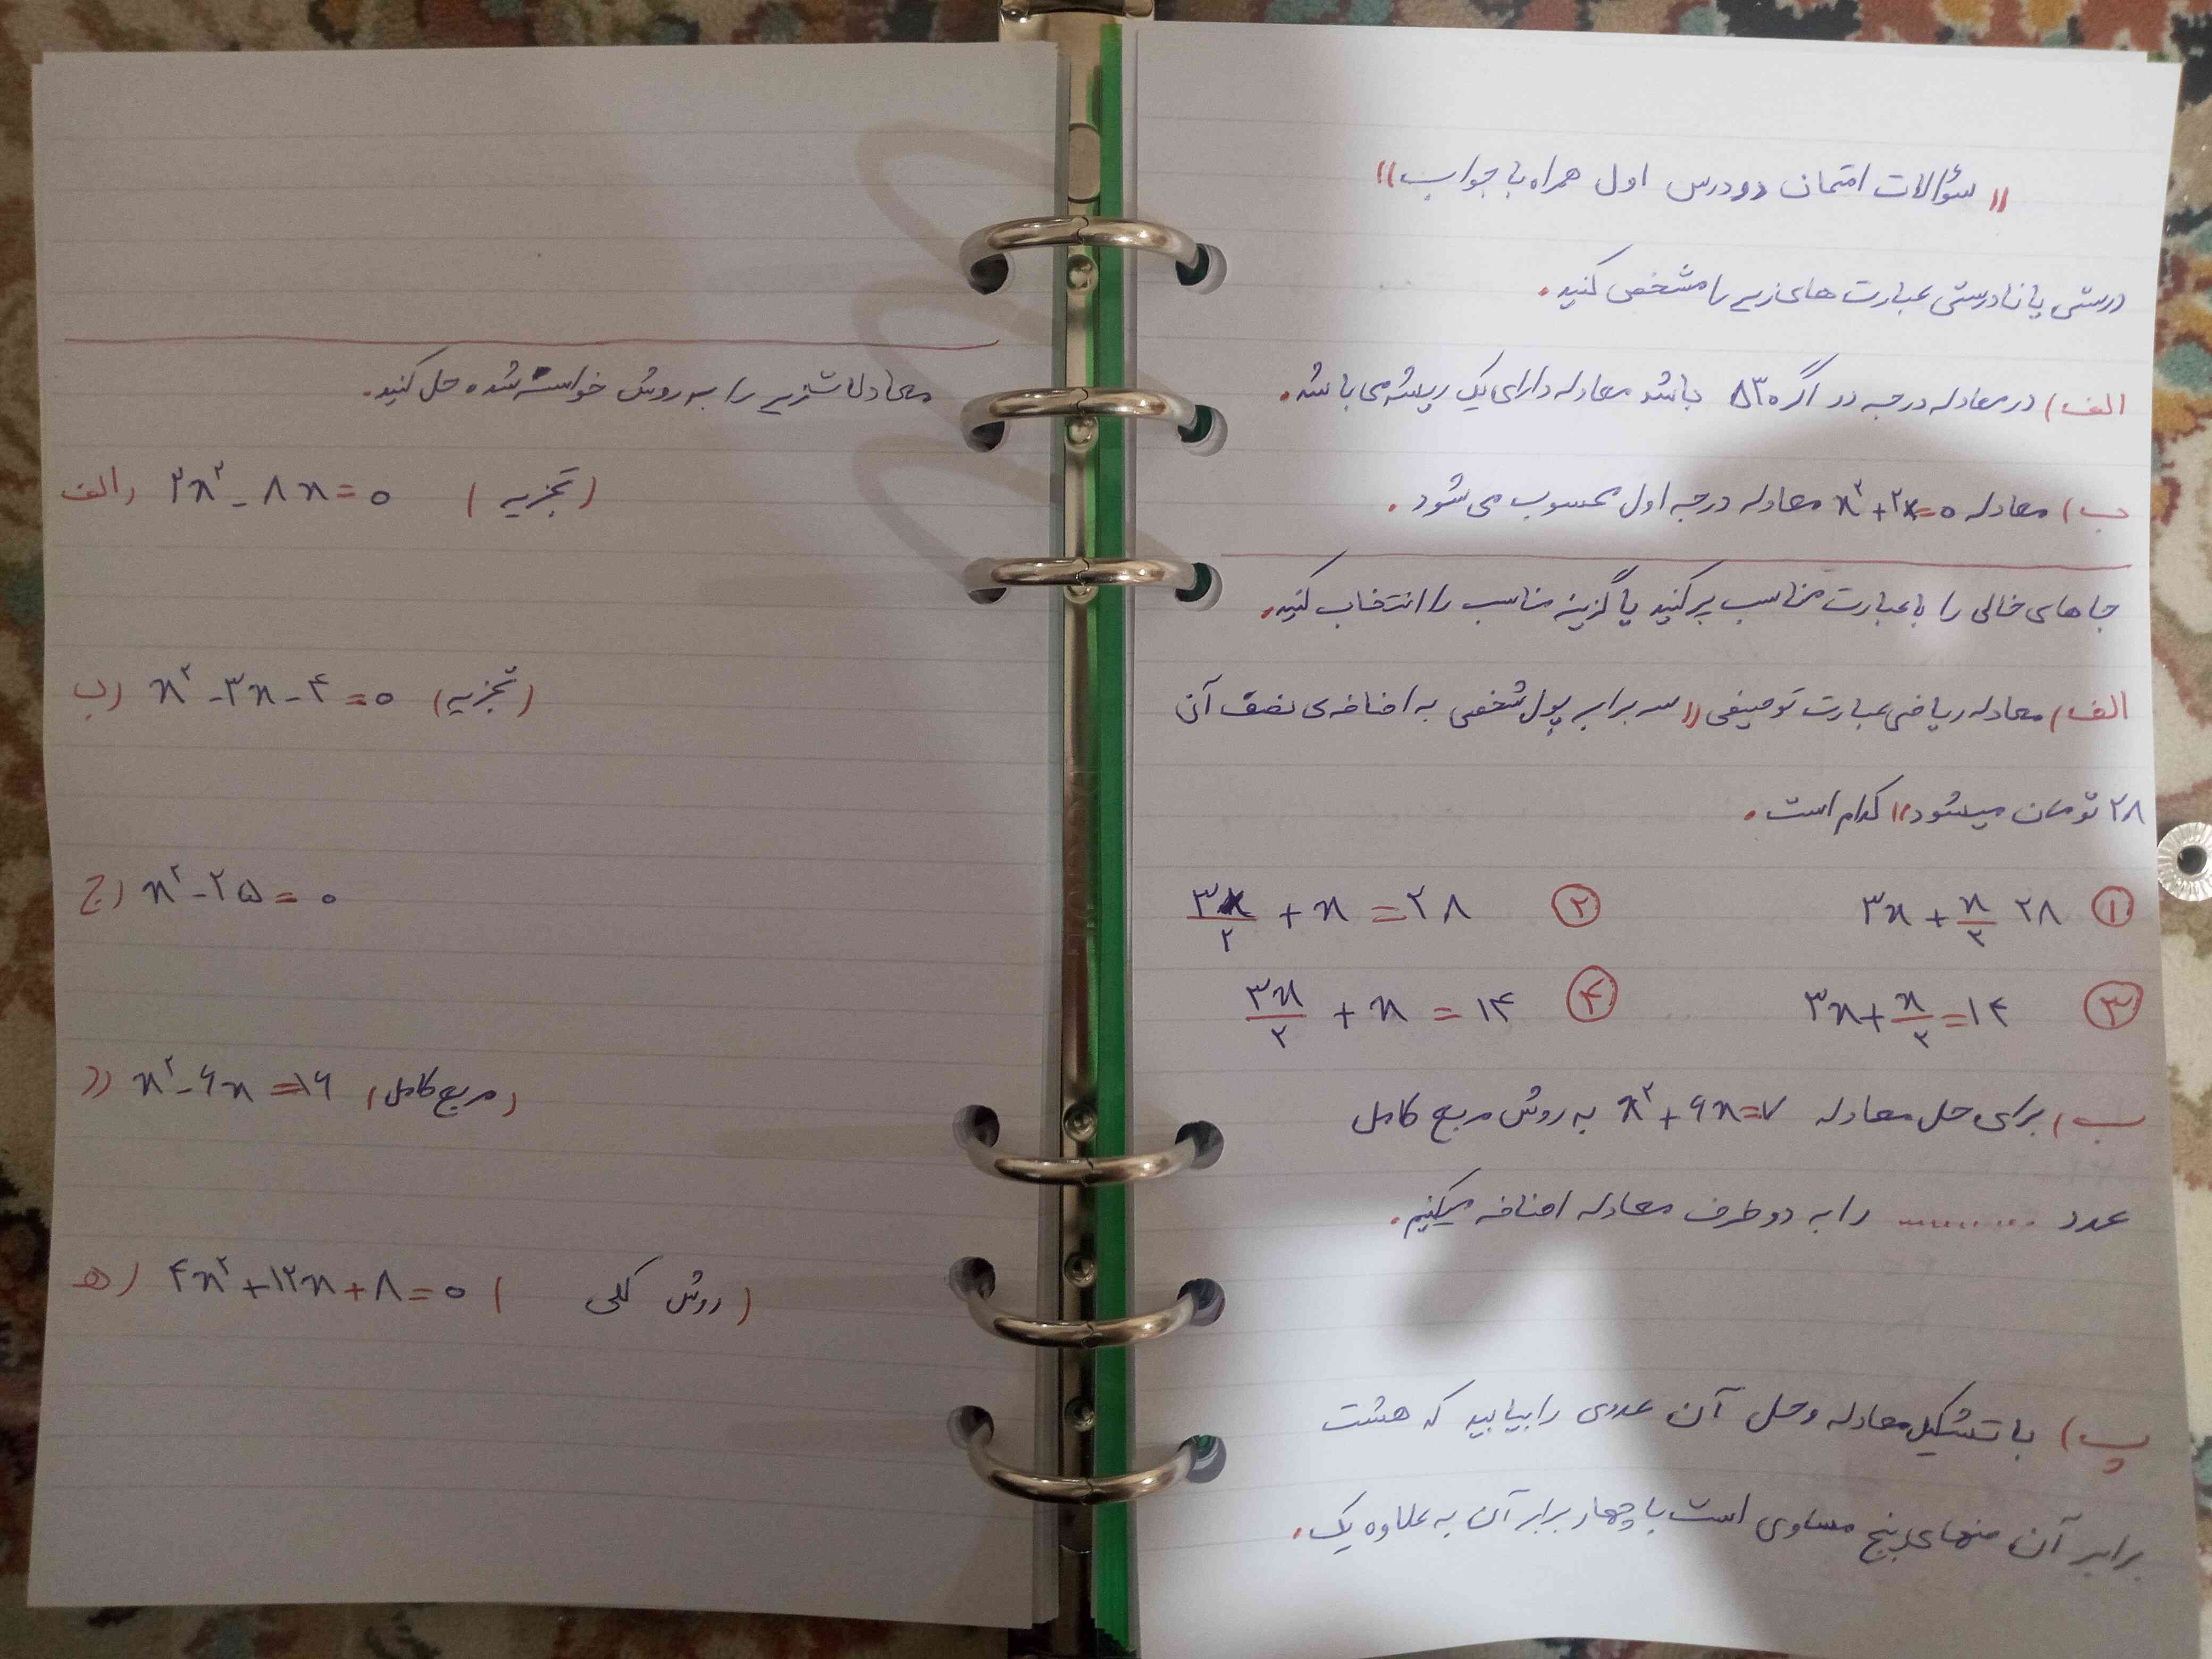 "سؤالات امتحان دو درس اول همراه با جواب"
درستی یا نادرستی عبارت های زیر را مشخص کنید.
الف) در معادله درجه دو اگر Δ۳۰ باشد معادله دارای یک ریشه می باشد.
ب) معادله x²+۲x=۰ معادله درجه اول محسوب می شود.
جاهای خالی را با عبارت مناسب پر کنید یا گزینه مناسب را انتخاب کنید.
الف) معادله ریاضی عبارت توصیفی "سه برابر پول شخصی به اضافه ی نصف آن
۲۸ تومان میشود" کدام است.
① ۳x + x/۲ ۲۸ ② ۳x/۲ + x = ۲۸
③ ۳x + x/۲ = ۱۴ ④ ۳x/۲ + x = ۱۴
ب) برای حل معادله x²+۶x=۷ به روش مربع کامل
عدد .......... را به دو طرف معادله اضافه میکنیم.
پ) با تشکیل معادله و حل آن عددی را بیابید که هشت
برابر آن منهای پنج مساوی است با چهار برابر آن به علاوه یک.
معادلات زیر را به روش خواسته شده حل کنید.
الف) ۲x² - ۸x = ۰ (تجزیه)
ب) x² - ۳x - ۴ = ۰ (تجزیه)
ج) x² - ۲۵ = ۰
د) x² - ۶x = ۱۶ (مربع کامل)
ه) ۴x² + ۱۲x + ۸ = ۰ (روش کلی)